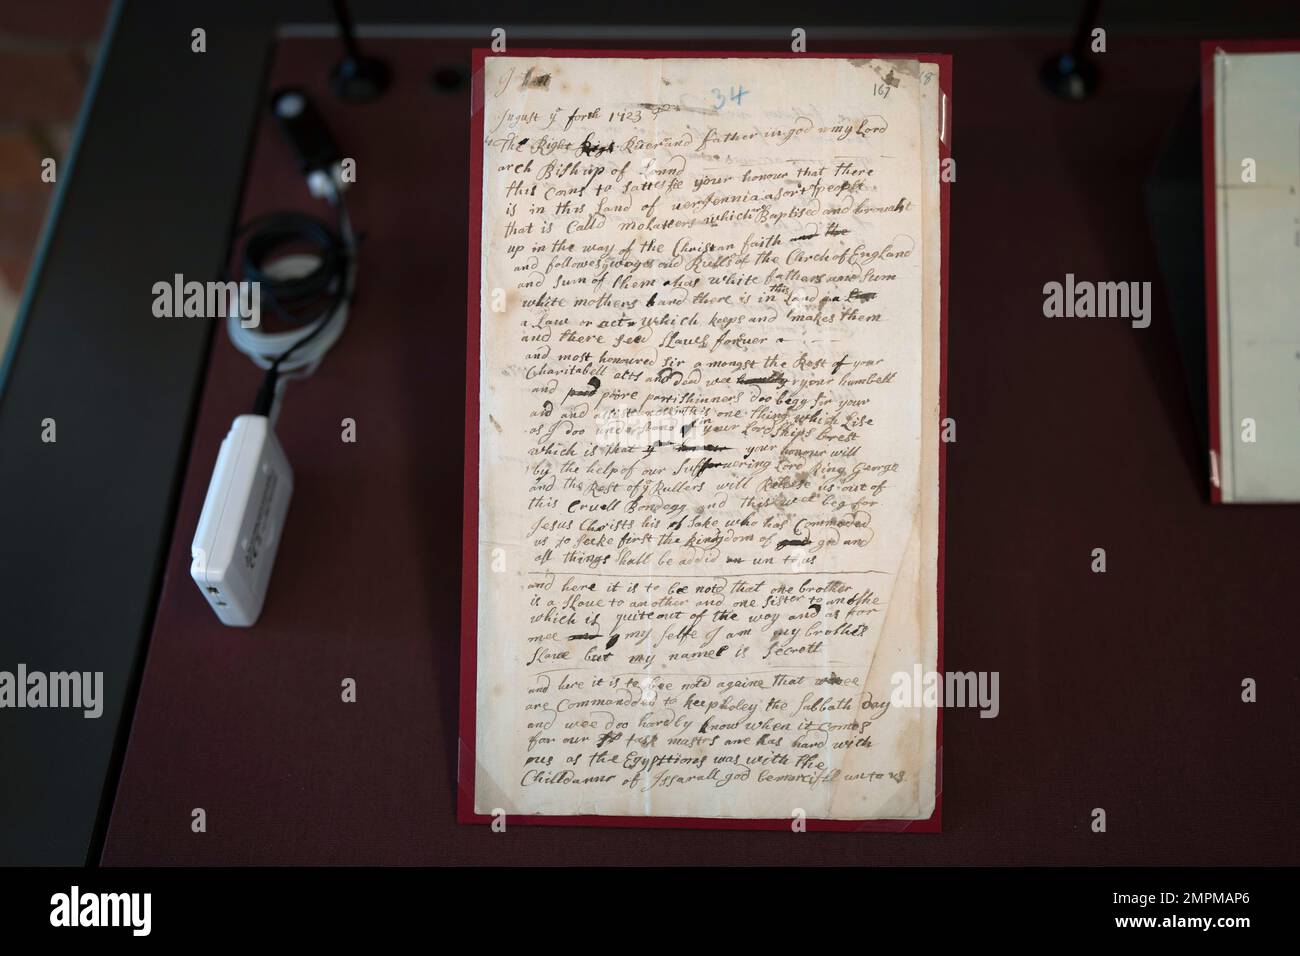 34
167
August ye forth 1723
The Right Reverand father in god my Lord
arch Bishup of Lound
this coms to sattesfie your honour that there
is in this Land of verJennia a Sort of people
that is Calld molatters which are Baptised and brouaht
up in the way of the Christan faith and the
and followes ye wayes and Rulls of the Chrch of England
and sum of them has white fathers and sum
white mothers and there is in this Land
a Law or act which keeps and makes them
and there seed Slaves forever
and most honoured sir a mongst the Rest of your
Charitabell acts and deed wee your humbell
and poore partishinners doo begg Sir your
aid and assisttancse in this one thing which Lise
as J doo understand in your LordShips brest
which is that your honour will
by the help of our Suffervering Lord King George
and the Rest of ye Rullers will Releese us out of
this Cruell Bondegg and this wee beg for
Jesus Christs his Sake who has Commaded
us to seeke first the kingdom of god and
all things shall be addid un to us
and here it is to bee noted that one brother
is a Slave to another and one Sister to an othe
which is quite out of the way and as for
mee my selfe J am my brothers
Slave but my name is Secrett
and here it is to bee noted againe that wee
are Commandded to keep holey the Sabbath day
and wee doo hardly know when it comes
for our task mastrs are has hard with
us as the Egypttions was with the
Chilldann of Jssarall god be marcifll unto us
alamy
alamy
Image ID: 2MPMAP6
www.alamy.com